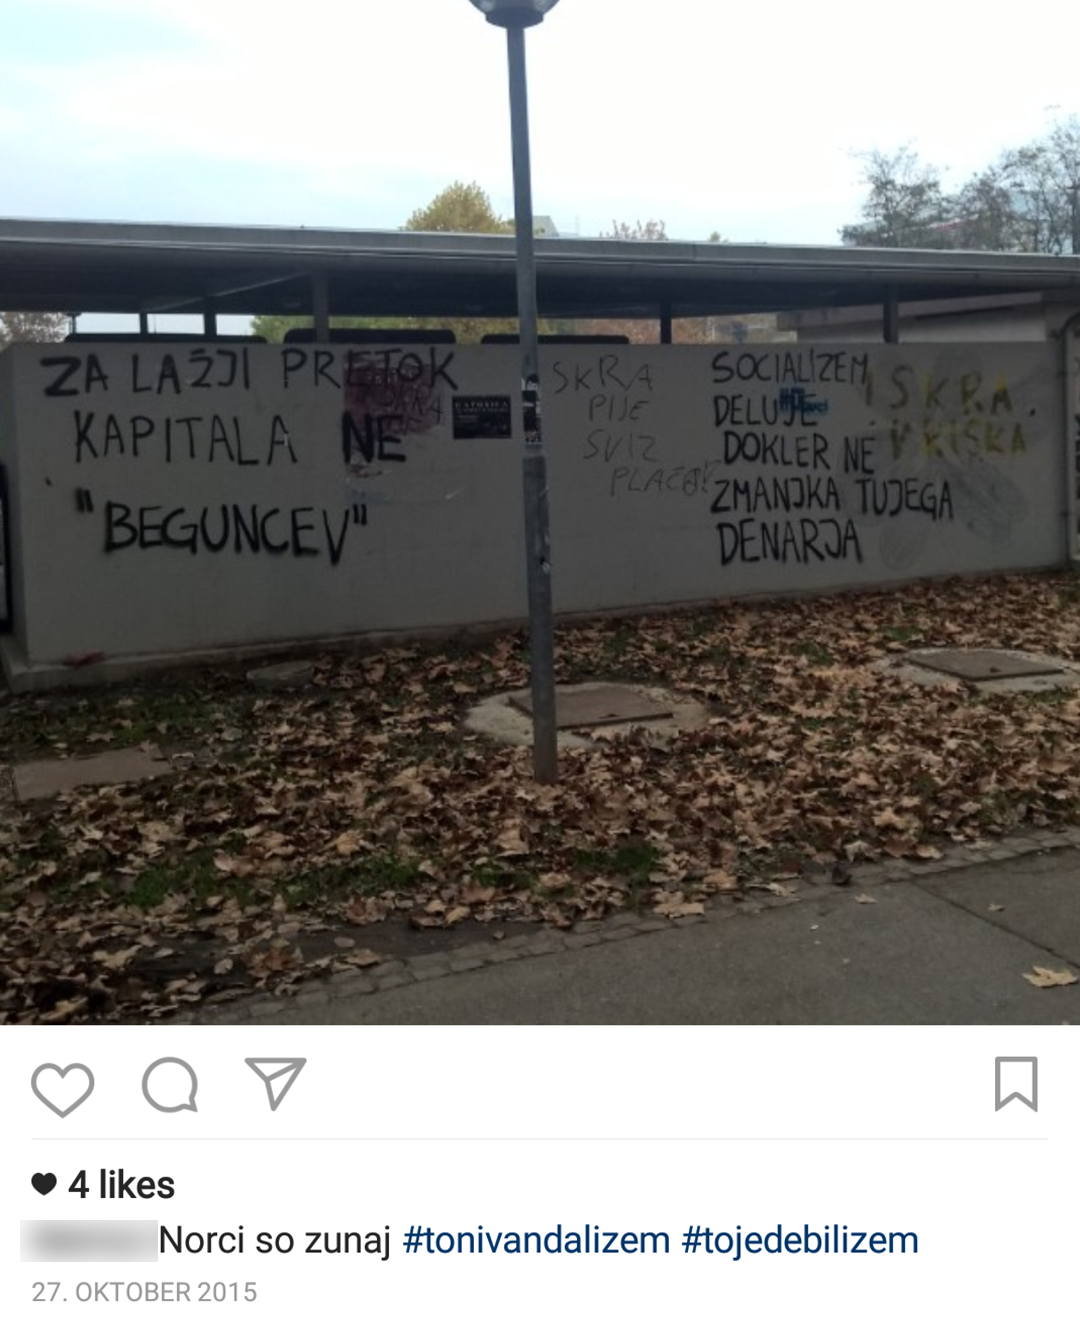 ZA LAŽJI PRETOK
KAPITALA NE
"BEGUNCEV"
SKRA
PIJE
SVIZ
PLACA!
SOCIALIZEM
DELUJE
DOKLER NE
ZMANJKA TUJEGA
DENARJA
ISKRA
V RISKA
4 likes
Norci so zunaj #tonivandalizem #tojedebilizem
27. OKTOBER 2015